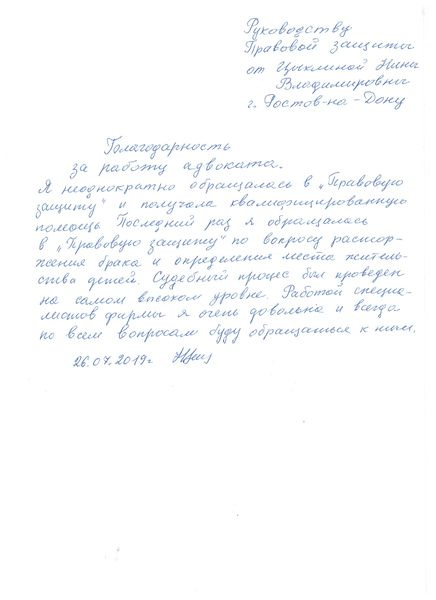 Руководству
Правовой защиты
от Цыклиной Нины
Владимировны
г. Ростов-на-Дону
Благодарность
за работу адвоката.
Я неоднократно обращалась в „Правовую
защиту" и получала квалифицированную
помощь. Последний раз я обращалась
в „Правовую защиту" по вопросу растор-
жения брака и определения места житель-
ства детей. Судебный процес был проведен
на самом высоком уровне. Работой специа-
листов фирмы я очень довольна и всегда
по всем вопросам буду обращаться к ним.
26.07.2019г